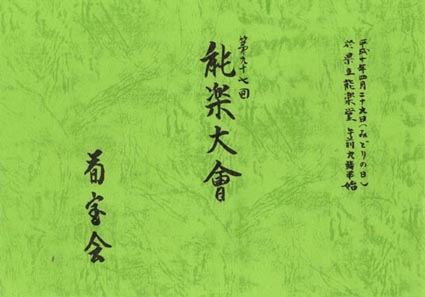 平成十年四月二十九日(みどりの日)
於県立能楽堂 午前九時半始
第九十七回
能楽大會
菊宝会